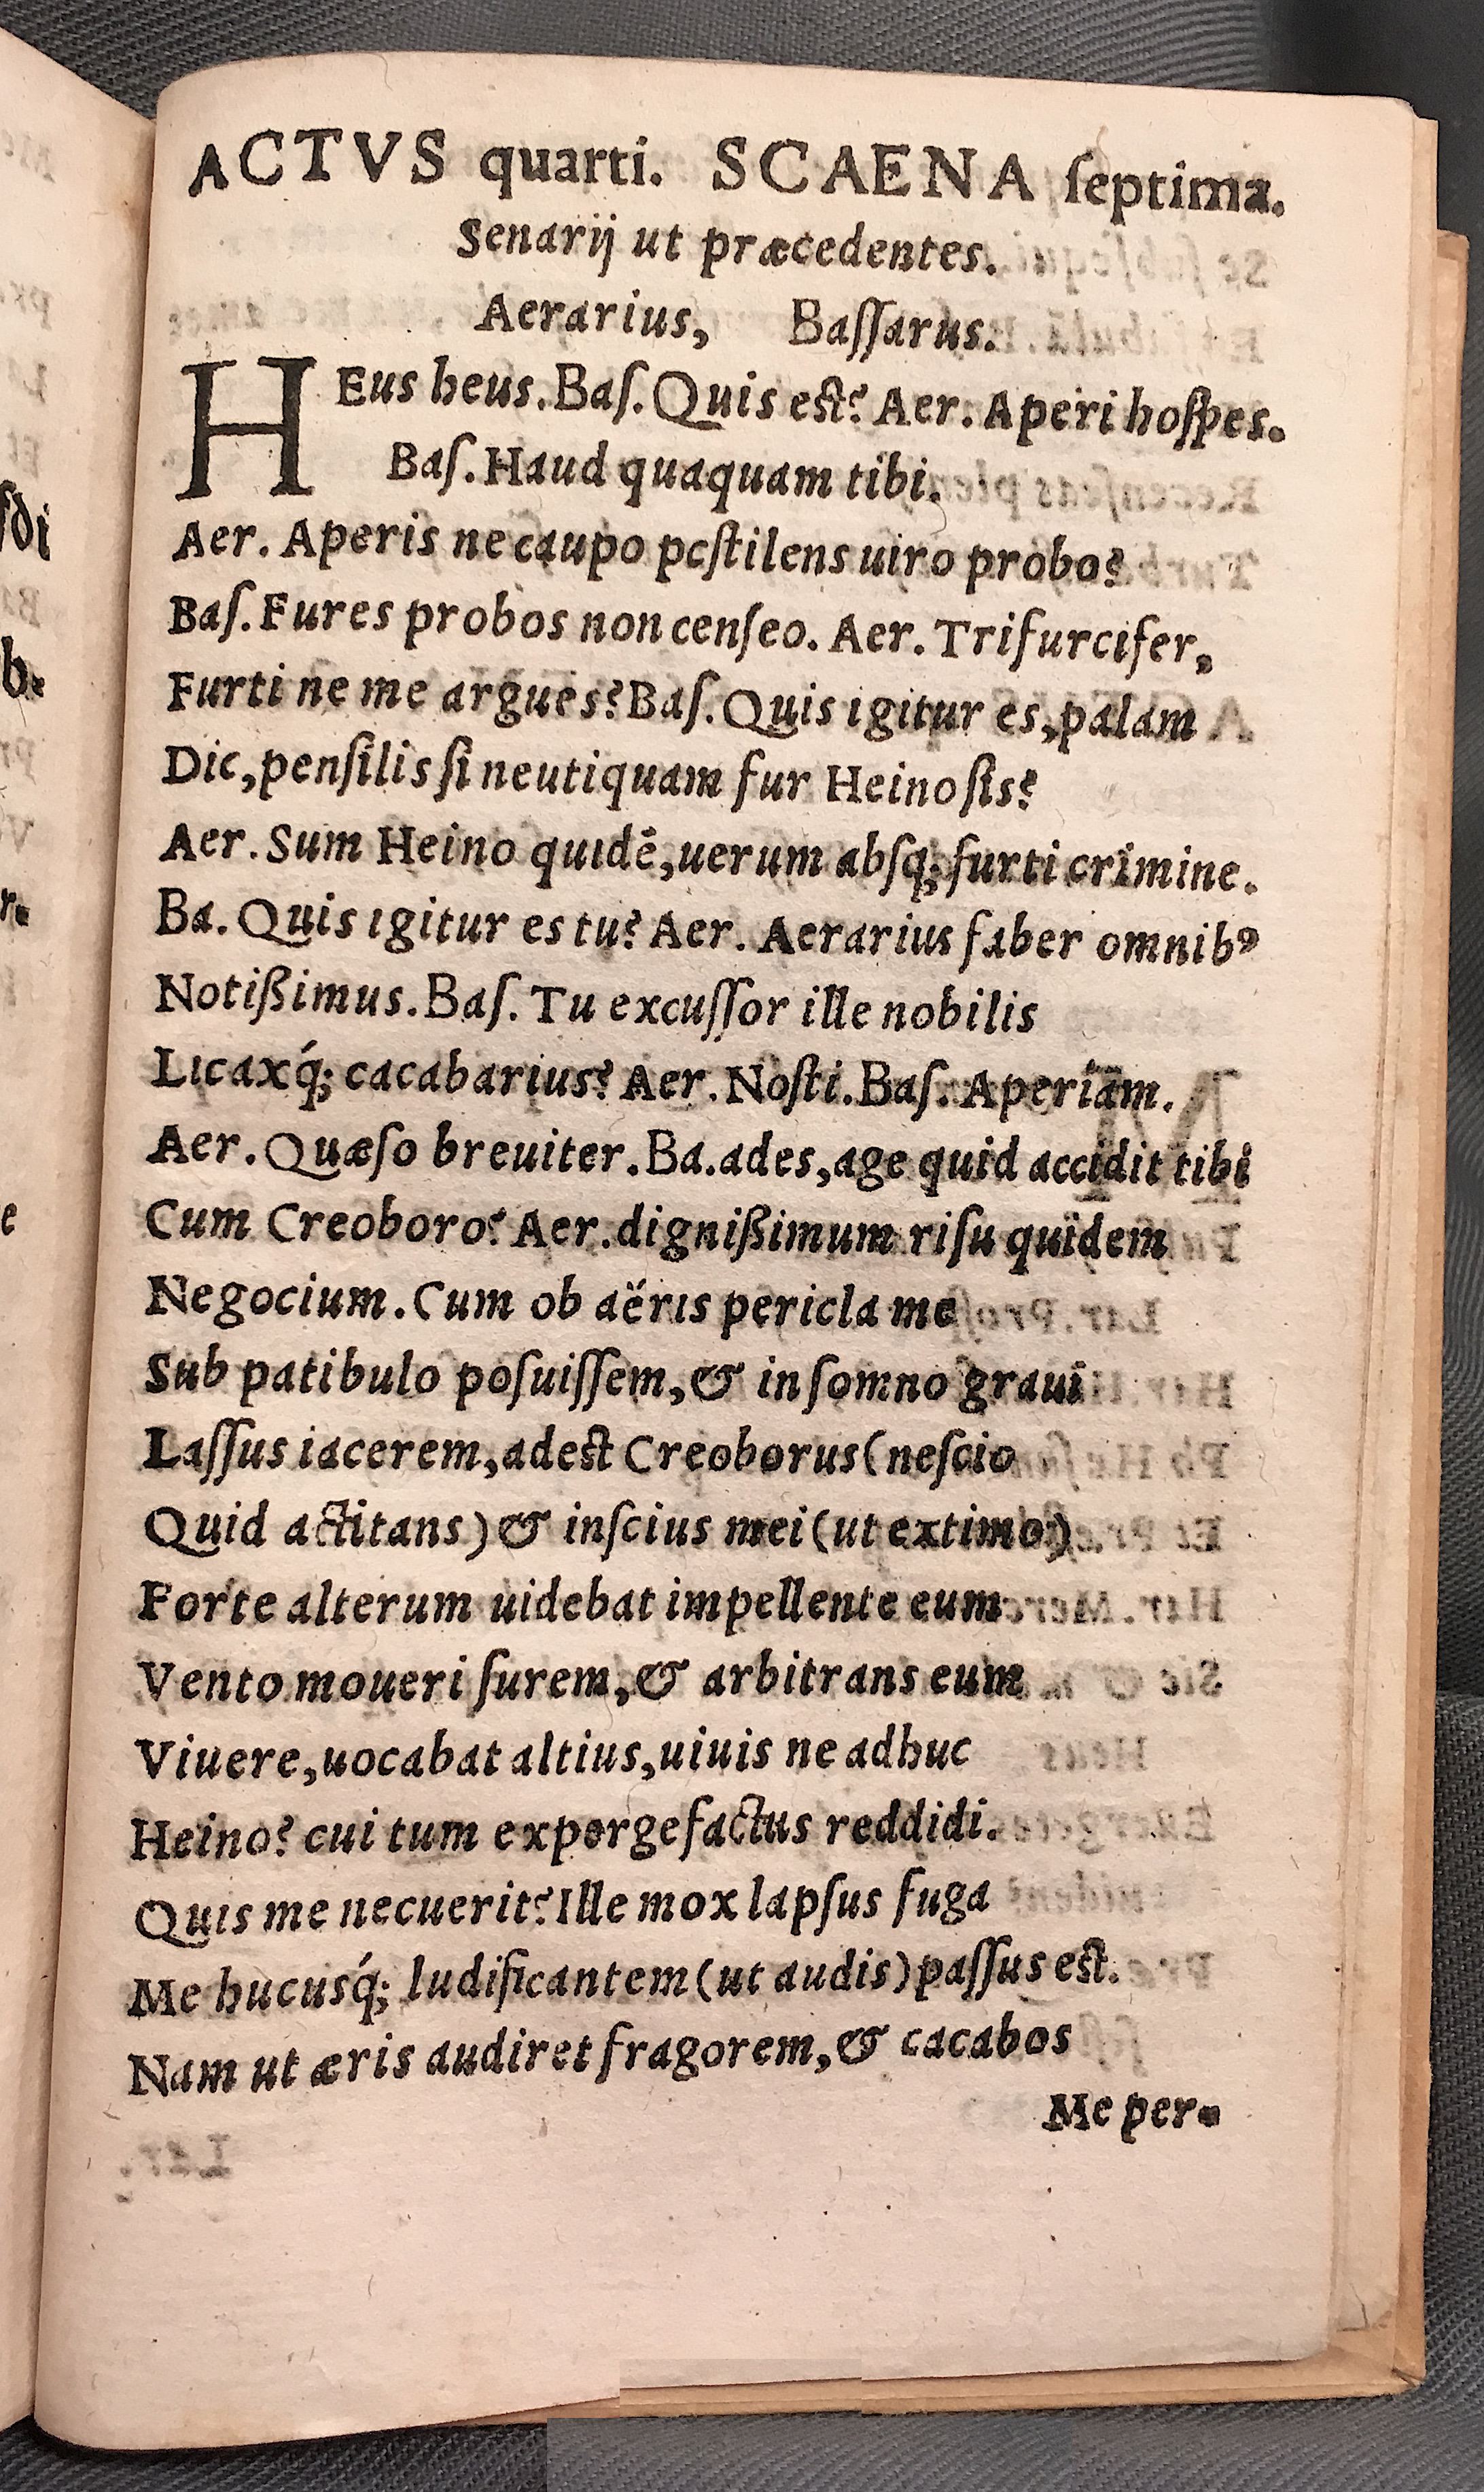 ACTVS quarti. SCAENA ſeptima.
Senarij ut præcedentes.
Aerarius, Baſſarus.
HEus heus. Baſ. Quis eſt? Aer. Aperi hoſpes.
Baſ. Haud quaquam tibi.
Aer. Aperis ne caupo peſtilens uiro probo?
Baſ. Fures probos non cenſeo. Aer. Trifurcifer,
Furti ne me argues? Baſ. Quis igitur es, palam
Dic, penſilis ſi neutiquam fur Heino ſis?
Aer. Sum Heino quidē, uerum abſq; furti crimine.
Ba. Quis igitur es tu? Aer. Aerarius faber omnibꝰ
Notißimus. Baſ. Tu excuſſor ille nobilis
Licaxq́; cacabarius? Aer. Noſti. Baſ. Aperiam.
Aer. Quæſo breuiter. Ba. ades, age quid accidit tibi
Cum Creoboro? Aer. dignißimum riſu quidem
Negocium. Cum ob aëris pericla me
Sub patibulo poſuiſſem, & in ſomno graui
Laſſus iacerem, adeſt Creoborus (neſcio
Quid actitans) & inſcius mei (ut extimo)
Forte alterum uidebat impellente eum
Vento moueri furem, & arbitrans eum
Viuere, uocabat altius, uiuis ne adhuc
Heino? cui tum expergefactus reddidi.
Quis me necuerit? Ille mox lapſus fuga
Me hucusq́; ludificantem (ut audis) paſſus eſt.
Nam ut æris audiret fragorem, & cacabos
Me per-